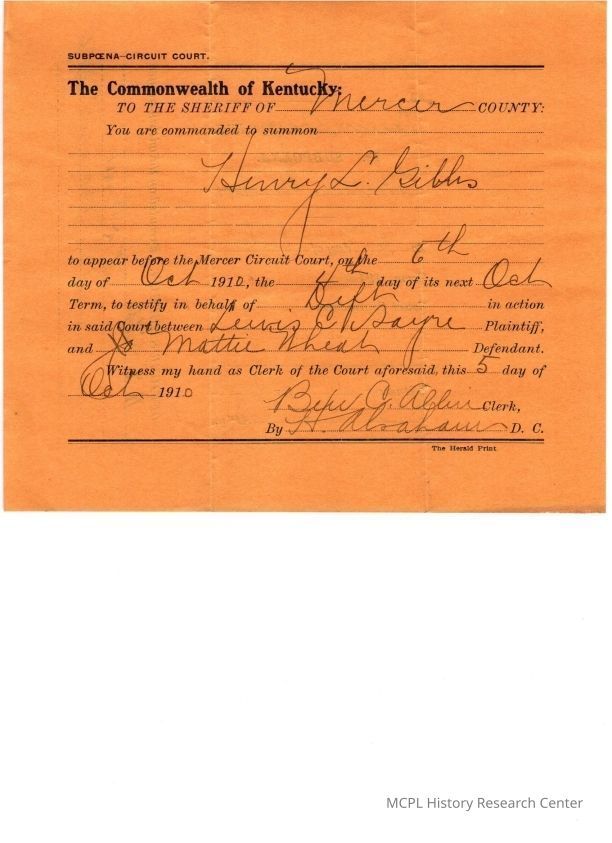 SUBPŒNA—CIRCUIT COURT.
The Commonwealth of Kentucky:
TO THE SHERIFF OF Mercer COUNTY:
You are commanded to summon
Henry L. Gibbs
to appear before the Mercer Circuit Court, on the 6th
day of Oct 1910, the 4th day of its next Oct
Term, to testify in behalf of Deft in action
in said Court between Lewis E. Sayre Plaintiff,
and Mattie Wheat Defendant.
Witness my hand as Clerk of the Court aforesaid, this 5 day of
Oct 1910
Ben C. Allin Clerk,
By H. Abraham D. C.
The Herald Print.
MCPL History Research Center